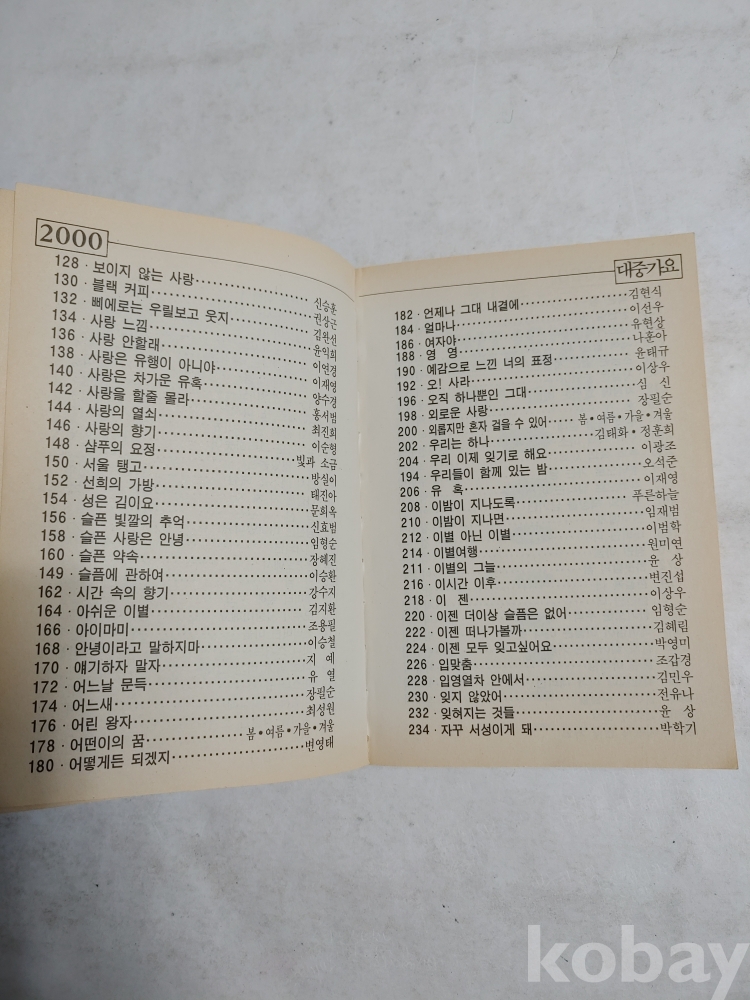 2000
128 · 보이지 않는 사랑 신승훈
130 · 블랙 커피 권상근
132 · 삐에로는 우릴보고 웃지 김완선
134 · 사랑 느낌 윤익희
136 · 사랑 안할래 이연경
138 · 사랑은 유행이 아니야 이재영
140 · 사랑은 차가운 유혹 양수경
142 · 사랑을 할줄 몰라 홍서범
144 · 사랑의 열쇠 최진희
146 · 사랑의 향기 이순형
148 · 샴푸의 요정 빛과 소금
150 · 서울 탱고 방실이
152 · 선희의 가방 태진아
154 · 성은 김이요 문희옥
156 · 슬픈 빛깔의 추억 신효범
158 · 슬픈 사랑은 안녕 임형순
160 · 슬픈 약속 장혜진
149 · 슬픔에 관하여 이승환
162 · 시간 속의 향기 강수지
164 · 아쉬운 이별 김지환
166 · 아이마미 조용필
168 · 안녕이라고 말하지마 이승철
170 · 얘기하자 말자 지 예
172 · 어느날 문득 유 열
174 · 어느새 장필순
176 · 어린 왕자 최성원
178 · 어떤이의 꿈 봄•여름•가을•겨울
180 · 어떻게든 되겠지 변영태
대중가요
182 · 언제나 그대 내곁에 김현식
184 · 얼마나 이선우
186 · 여자야 유현상
188 · 영 영 나훈아
190 · 예감으로 느낀 너의 표정 윤태규
192 · 오! 사라 이상우
196 · 오직 하나뿐인 그대 심 신
198 · 외로운 사랑 장필순
200 · 외롭지만 혼자 걸을 수 있어 봄•여름•가을•겨울
202 · 우리는 하나 김태화•정훈희
204 · 우리 이제 잊기로 해요 이광조
194 · 우리들이 함께 있는 밤 오석준
206 · 유 혹 이재영
208 · 이밤이 지나도록 푸른하늘
210 · 이밤이 지나면 임재범
212 · 이별 아닌 이별 이범학
214 · 이별여행 원미연
211 · 이별의 그늘 윤 상
216 · 이시간 이후 변진섭
218 · 이 젠 이상우
220 · 이젠 더이상 슬픔은 없어 임형순
222 · 이젠 떠나가볼까 김혜림
224 · 이젠 모두 잊고싶어요 박영미
226 · 입맞춤 조갑경
228 · 입영열차 안에서 김민우
230 · 잊지 않았어 전유나
232 · 잊혀지는 것들 윤 상
234 · 자꾸 서성이게 돼 박학기
kobay